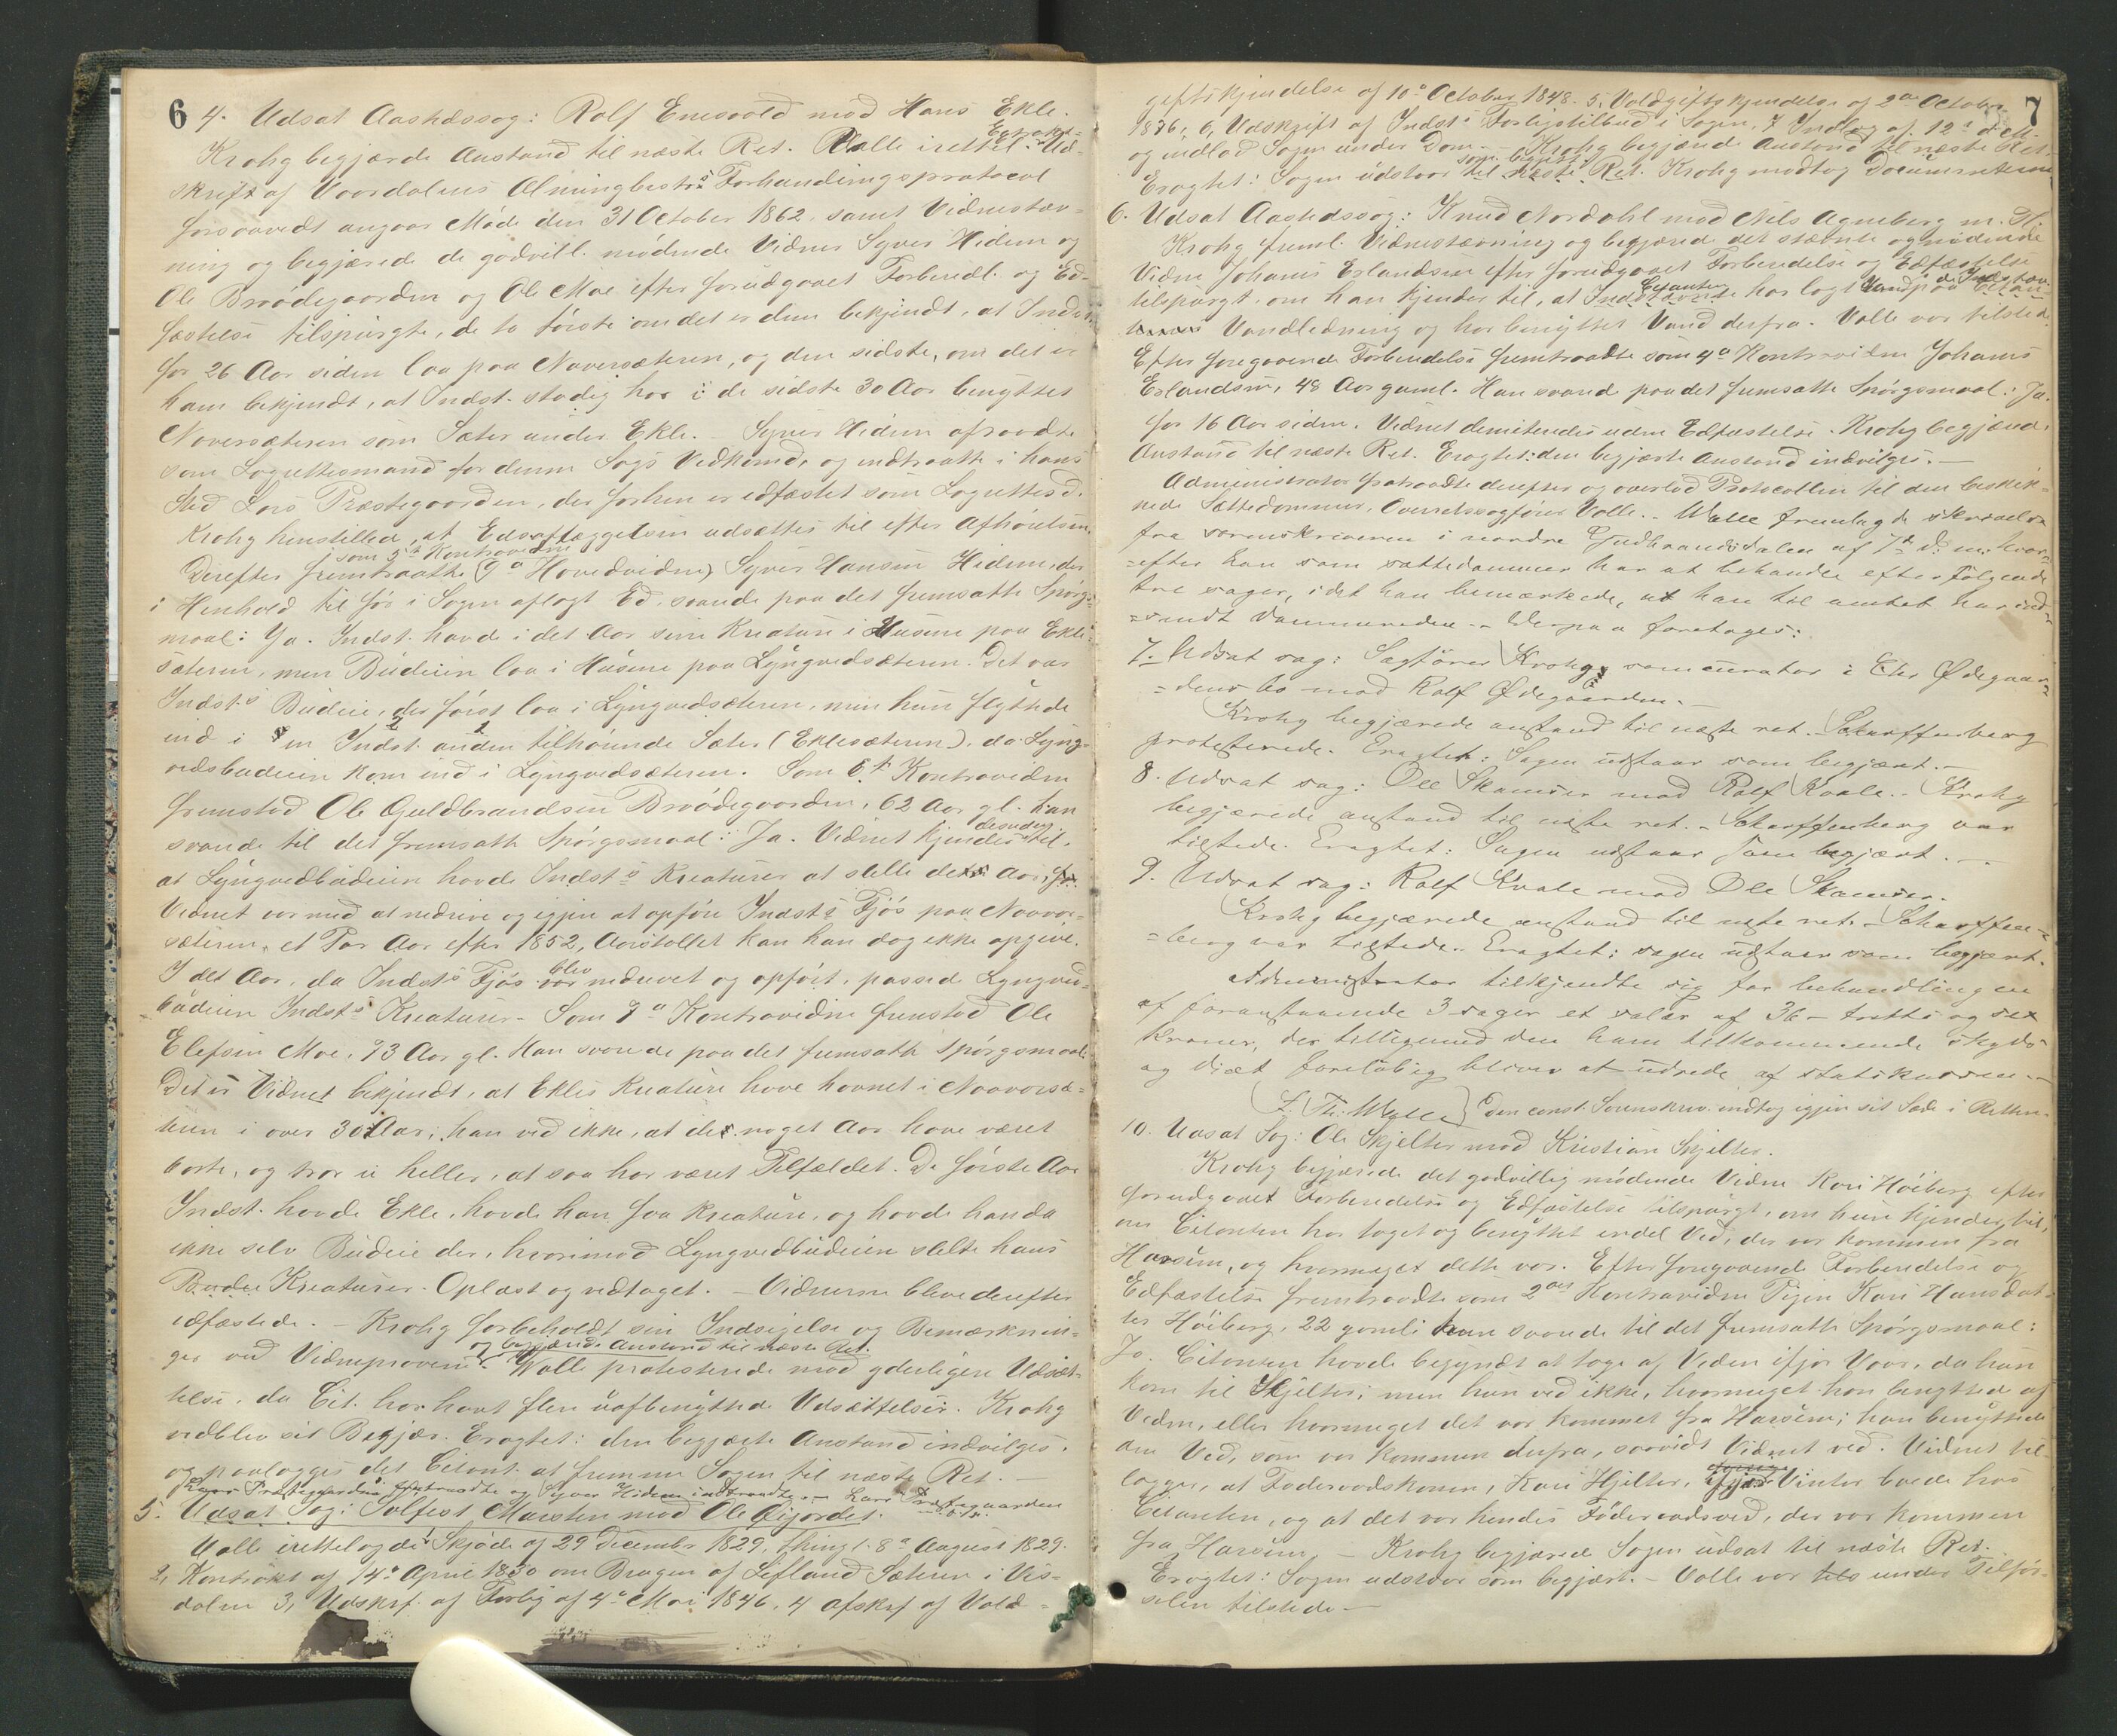 6
4. Udsat Aastedssag: Rolf Enevold mod Hans Ekle.
Krohg begjærde Anstand til næste Ret. Valle irettel. Extrakt-Ud-
skrift af Vaardalens Almingbests Forhandlingsprotocol
forsaavidt angaar Møde den 31 October 1862, samt Vidnestæv-
ning og begjærede de godvill. mødende Vidner Syver Hidem og
Ole Brødegaarden og Ole Moe efter forudgaaet Forberedl. og Ed-
fæstelse tilspurgte, de to første om det er dem bekjendt, at Indst.
for 26 Aar siden laa paa Naversæteren, og den sidste, om det er
ham bekjendt, at Indst. stadig har i de sidste 30 Aar benyttet
Naversæteren som Sæter under Ekle. – Syver Hidem afraadte
som Lagrettesmand for denne Sags Vedkomd, og indtraatte i hans
Sted Lars Præstegaarden, der forhen er edfæstet som Lagrettesd.
Krohg henstillede, at Edsaflæggelsen udsættes til efter Afhørelsen.
som 5te Kontravidne
Derefter fremtraatte (9de Hovedvidne) Syver Hansen Hidem, der
i Henhold til før i Sagen aflagt Ed, svarede paa det fremsatte Spørgs-
maal: Ja. Indst. havde i det Aar sine Kreaturer i Husene paa Ekle-
sæteren, men Budeien laa i Husene paa Lyngvedsæteren. Det var
Indsts Budeie, der først laa i Lyngvedsæteren, men hun flyttede
ind i en Indst. anden tilhørende Sæter (Eklesæteren), da Lyng-
vedsbudeien kom ind i Lyngvedsæteren. Som 6te Kontravidne
fremstod Ole Guldbrandsen Brødegaarden, 62 Aar gl. Han
svarede til det fremsatte Spørgsmaal: Ja. Vidnet kjender desuden til,
at Lyngvedbudeien havde Indsts Kreaturer at stelle dette Aar, for
Vidnet var med at nedrive og igjen at opføre Indsts Fjøs paa Naavor-
sæteren, et Par Aar efter 1852, Aarstallet kan han dog ikke opgive.
I det Aar, da Indsts Fjøs blev nedrevet og opført, passede Lyngved-
budeien Indsts Kreaturer – Som 7de Kontravidne fremstod Ole
Elefsen Moe, 73 Aar gl. Han svarede paa det fremsatte Spørgsmaal:
Det er Vidnet bekjendt, at Ekles Kreature have havnet i Naavorsæ-
teren i over 30 Aar; han ved ikke, at de noget Aar have været
borte, og tror ei heller, at saa har været Tilfældet. De første Aar
Indst. havde Ekle, havde han faa Kreature, og havde han da
ikke selv Budeie der, hvorimod Lyngvedbudeien stelte hans
Budei Kreaturer. Oplæst og vedtaget. – Vidnerne bleve derefter
edfæstede. – Krohg forbeholdt sin Indsigelse og Bemærknin-
og begjærede Anstand til næste Ret.
ger ved Vidneprøven. Valle protesterede mod yderligere Udsæt-
telse, da Cit. har havt flere uafbenyttede Udsættelser. Krohg
vedblev sit Begjær. Eragtet: den begjærte Anstand indvilges,
og paalægges det Citant. at fremme Sagen til næste Ret. –
Lars Præstegaarden fratraadte og Syver Hidem indtraadte. – Lars Præstegaarden
5. Udsat Sag: Solfest Marsten mod Ole Gjordet.
Valle irettelagde: Skjøde af 29 December 1829, thingl. 8de August 1829.
2, Kontrakt af 14de April 1830 om Brugen af Lifland Sæteren i Vis-
dalen 3, Udskrf. af Forlig af 4de Mai 1846, 4 Afskrf af Vold-
7
giftskjendelse af 10de October 1848. 5, Voldgiftskjendelse af 2den October
1876, 6, Udskrift af Indsts Forligstilbud i Sagen, 7 Indlæg af 12te d. M.
og indlod Sagen under Dom. – Krohg begjærede Anstand til næste Ret.
som begjært
Eragtet: Sagen udstaar til næste Ret. Krohg modtog Documenterne
6. Udsat Aastedssag: Knud Nordahl mod Nils Agneberg m. Fl.
Krohg freml. Vidnestævning og begjærede det stævnte og mødende
Vidne Johans Erlandsen efter forudgaaet Forberedelse og Edfæstelse
tilspurgt, om han kjender til, at Citanten har lagt Vand paa de Indstævn-
Vandledning og har benyttet Vand derfra. Valle var tilstede.
Efter foregaaende Forberedelse fremtraadte som 4de Kontravidne Johans
Erlandsen, 48 Aar gaml. Han svarede paa det fremsatte Spørgsmaal: Ja.
for 16 Aar siden. Vidnet demitteredes uden Edfæstelse. Krohg begjærede
Anstand til næste Ret. Eragtet: den begjærte Anstand indvilges. –
Administrator fratraadte derefter og overlod Protocollen til den beskik-
kede Sættedommer, Overretssagfører Valle. – Walle fremlagde skrivelse
fra sorenskriveren i nordre Gudbrandsdalen af 7de d. m. hvor-
=efter han som sættedommer har at behandle efterfølgende
tre sager, idet han bemærkede, at han til amtet har ind-
=sendt Dommereden. – Derpaa foretages:
7. Udsat sag: Sagfører Krohg, som curator i Elis Ødegaar-
=dens bo mod Rolf Ødegaarden. –
Krohg begjærede anstand til næste ret. – Scharffenberg
protesterede. Eragtet: Sagen udstaar som begjært. –
8. Udsat sag: Ole Skamsar mod Rolf Kvale. – Krohg
begjærede anstand til næste ret. – Scharffenberg var
tilstede. Eragtet: Sagen udstaar som begjært. –
9. Udsat sag: Rolf Kvale mod Ole Skamsar.
Krohg begjærede anstand til næste ret. – Scharffen-
=berg var tilstede. Eragtet: sagen udstaar som begjært.
Administrator tilkjendte sig for behandlingen
af foranstaaende 3 sager et salær af 36 – tretti og sex
kroner, der tilligemed den ham tilkommende skyds
og diæt foreløbig bliver at udrede af statskassen. –
(F. Th. Walle) Den const. Sorenskriv. indtog igjen sit Sæde i Retten.
10. Udsat Sag: Ole Skjelter mod Kristian Skjelter.
Krohg begjærede det godvillig mødende Vidne Kari Høiberg efter
forudgaaet Forberedelse og Edfæstelse tilspurgt, om hun kjender til,
om Citanten har taget og benyttet endel Ved, der var kommen fra
Harsem, og hvormeget dette var. Efter foregaaende Forberedelse og
Edfæstelse fremtraadte som 2det Kontravidne Pigen Kari Hansdat-
ter Høiberg, 22 gaml: hun svarede til det fremsatte Spørgsmaal:
Ja. Citanten havde begyndt at tage af Veden ifjor Vaar, da hun
kom til Skjelter; men hun ved ikke, hvormeget han benyttede af
Veden, eller hvormeget det var kommet fra Harsem; han benyttede
den Ved, som var kommen derfra, saavidt Vidnet ved. Vidnet til-
lægger, at Føderaadskonen, Kari Hjelter, ifjor Vinter boede hos
Citanten, og at det var hendes Føderaadsved, der var kommen
fra Harsem. – Krohg begjærede Sagen udsat til næste Ret.
Eragtet: Sagen udstaar som begjært. – Valle var under Tilfør-
selen tilstede –